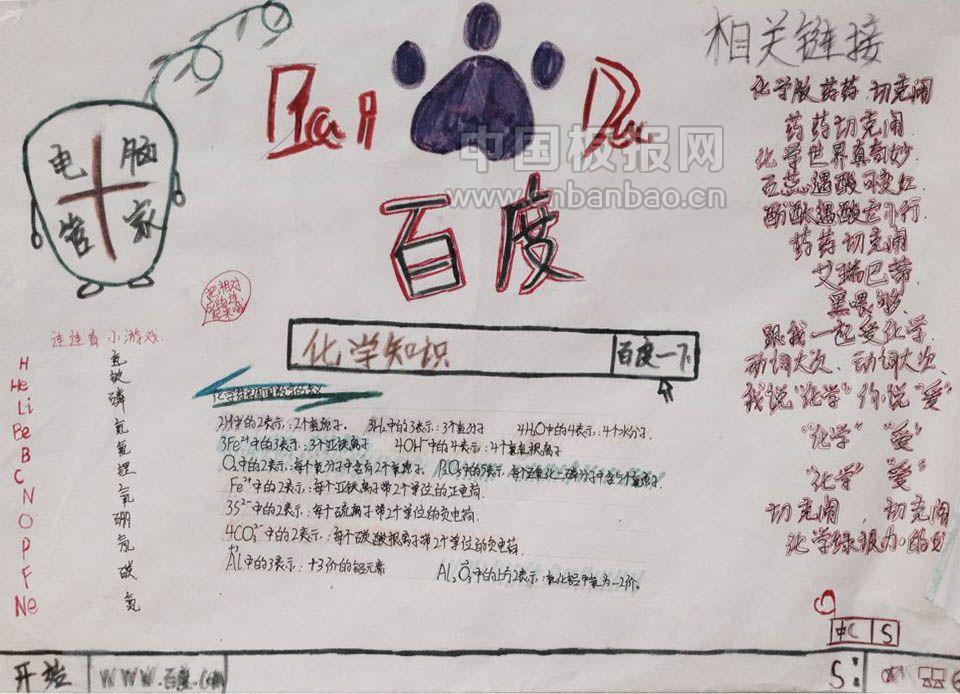 相关链接
Bai Du
百度
电脑
管家
中国板报网
www.cnbanbao.cn
化学版药药切克闹
药药切克闹
化学世界真奇妙
石蕊遇酸可变红
酚酞遇酸它不行
药药切克闹
艾瑞巴蒂
黑喂够
跟我一起爱化学
动词大次 动词大次
我说"化学"你说"爱"
"化学" "爱"
"化学" "爱"
切克闹 切克闹
把相对应的连起来哦
连连看小游戏
化学知识 百度一下
化学符号周围数字的意义
2H中的2表示:2个氢原子. 3H₂中的3表示:3个氢分子 4H₂O中的4表示:4个水分子.
3Fe²⁺中的3表示:3个亚铁离子 4OH⁻中的4表示:4个氢氧根离子
O₂中的2表示:每个氧分子中含有2个氧原子. P₂O₅中的5表示:每个五氧化二磷分子中含5个氧原子.
Fe²⁺中的2表示:每个亚铁离子带2个单位的正电荷.
3S²⁻中的2表示:每个硫离子带2个单位的负电荷.
4CO₃²⁻中的2表示:每个碳酸根离子带2个单位的负电荷
+3
Al中的3表示:+3价的铝元素
Al₂O₃中的上方2表示:氧化铝中氧为-2价.
H
He
Li
Be
B
C
N
O
P
F
Ne
氢
磷
氧
硼
氖
碳
氮
中 S
开始 www.百度.com
S: